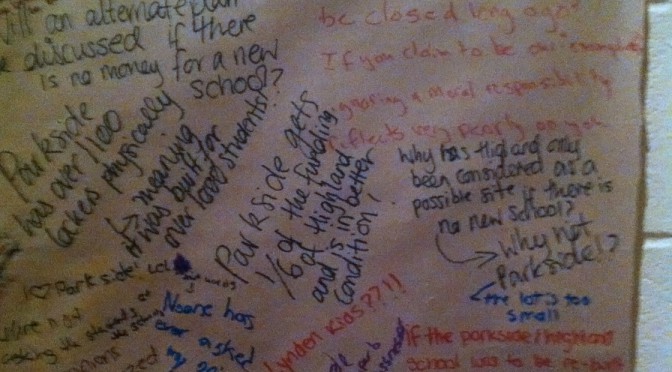 Will an alternate plan
be discussed if there
is no money for a new
school?
be closed long ago?
If you claim to be an
ignoring a moral responsibility
reflects very poorly on you
Parkside
has over 1100
lockers physically
↳ meaning
it was built for
over 1000 students!
Parkside gets
1/6 of the funding
of Highland
and is in better
condition!
Why has Highland only
been considered as a
possible site if there is
no new school?
→ Why not
Parkside!?
the lot is too
small
I ♡ Parkside!
Noone has
ever asked
Lynden kids??!!
if the parkside/highland
school was to be re-built